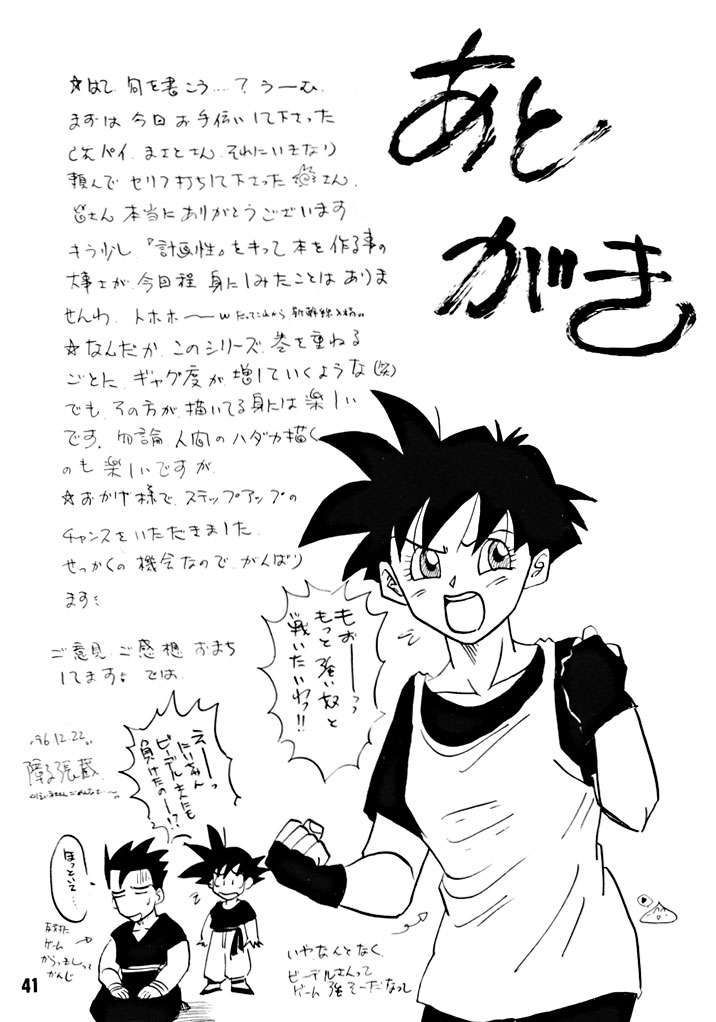 あと
がき
☆はて、何を書こう…‥? うーむ、
まずは 今回 お手伝いして下さった
パイ、まさとさん、それにいきなり
頼んで セリフ打ちして下さった さん、
皆さん 本当にありがとうございます
もう少し、『計画性』をもって 本を作る事の
大事さが、今回程 身にしみたことは ありま
せんわ、トホホ〜〜w だってこれから 新幹線入稿。。
☆なんだか、このシリーズ、巻を重ねる
ごとに、ギャグ度が 増していくような(笑)
でも、その方が、描いてる身には 楽しい
です。勿論 人間のハダカ描く
のも 楽しいですが、
☆おかげ様で、ステップアップの
チャンスをいただきました、
せっかくの 機会なので、がんばり
ます!
ご意見、ご感想 おまち
してます♪ では、
'96.12.22..
障子張蔵
もぉーーっっ
もっと強い奴と
戦いたいわっ!!
えーーっ
にいちゃん
ビーデルさんにも
負けたのー!?
ほっといて…
反対に
ゲーム
からっきしって
かんじ
いや なんとなく、
ビーデルさんって
ゲーム 強そーだなって
41